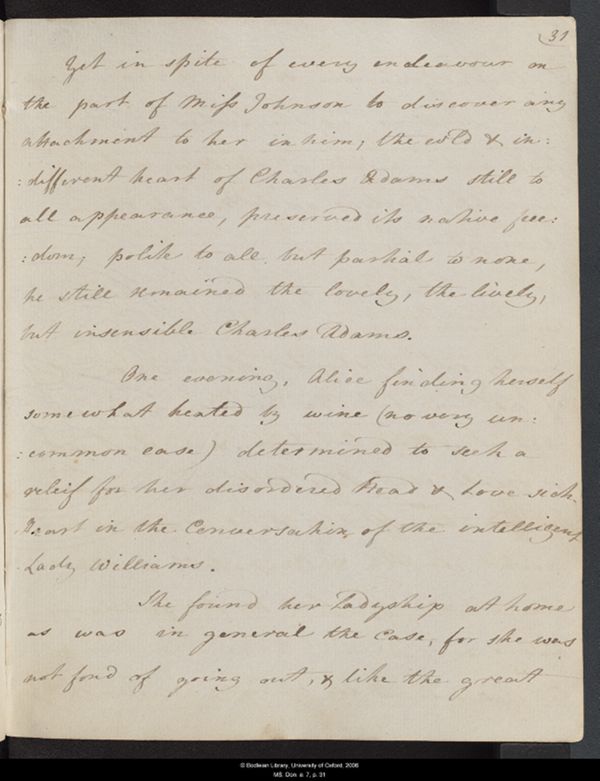 31
Yet in spite of every endeavour on
the part of Miss Johnson to discover any
attachment to her in him; the cold & in:
:different heart of Charles Adams still to
all appearance, preserved its native free:
:dom; polite to all but partial to none,
he still remained the lovely, the lively,
but insensible Charles Adams.
One evening, Alice finding herself
somewhat heated by wine (no very un:
:common case) determined to seek a
releif for her disordered Head & Love-sick
Heart in the Conversation of the intelligent
Lady Williams.
She found her Ladyship at home
as was in general the Case, for she was
not fond of going out, & like the great
© Bodleian Library, University of Oxford, 2006
MS. Don. e. 7, p. 31